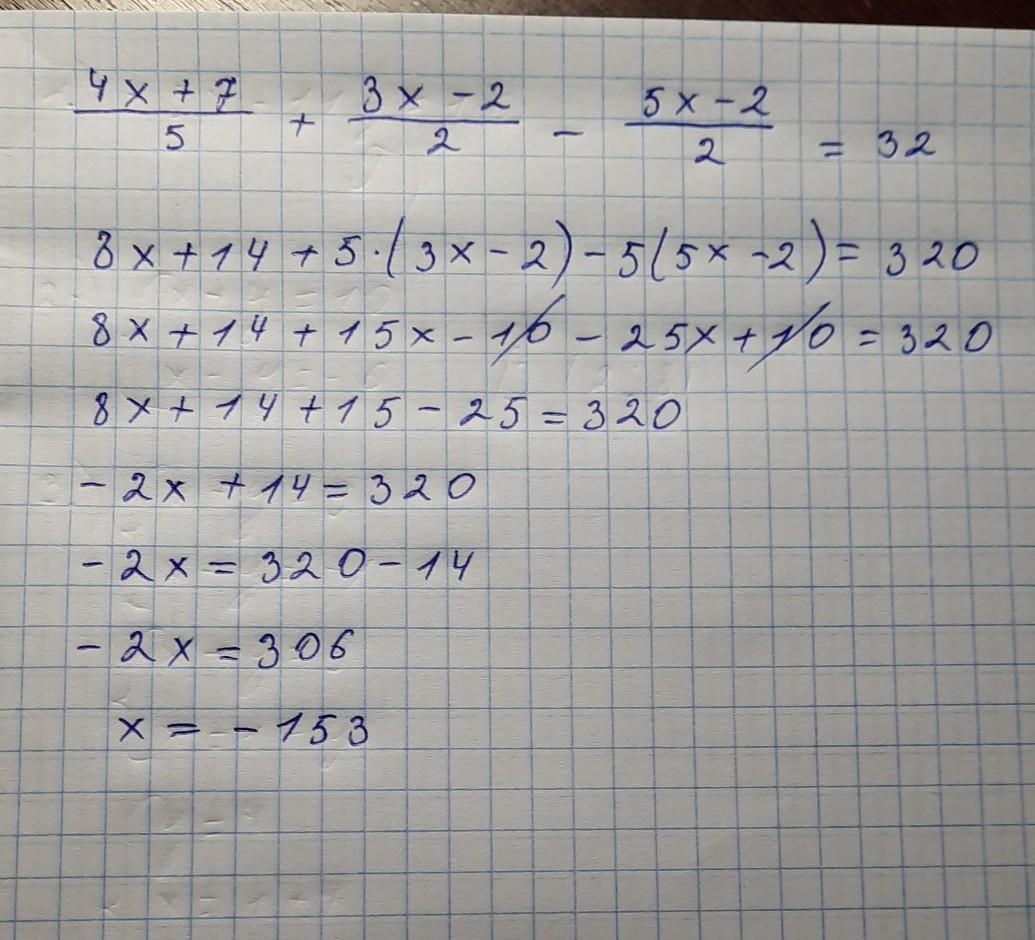 (4x + 7)/5 + (3x - 2)/2 - (5x - 2)/2 = 32
8x + 14 + 5·(3x - 2) - 5(5x - 2) = 320
8x + 14 + 15x - 10 - 25x + 10 = 320
8x + 14 + 15 - 25 = 320
- 2x + 14 = 320
- 2x = 320 - 14
- 2x = 306
x = - 153